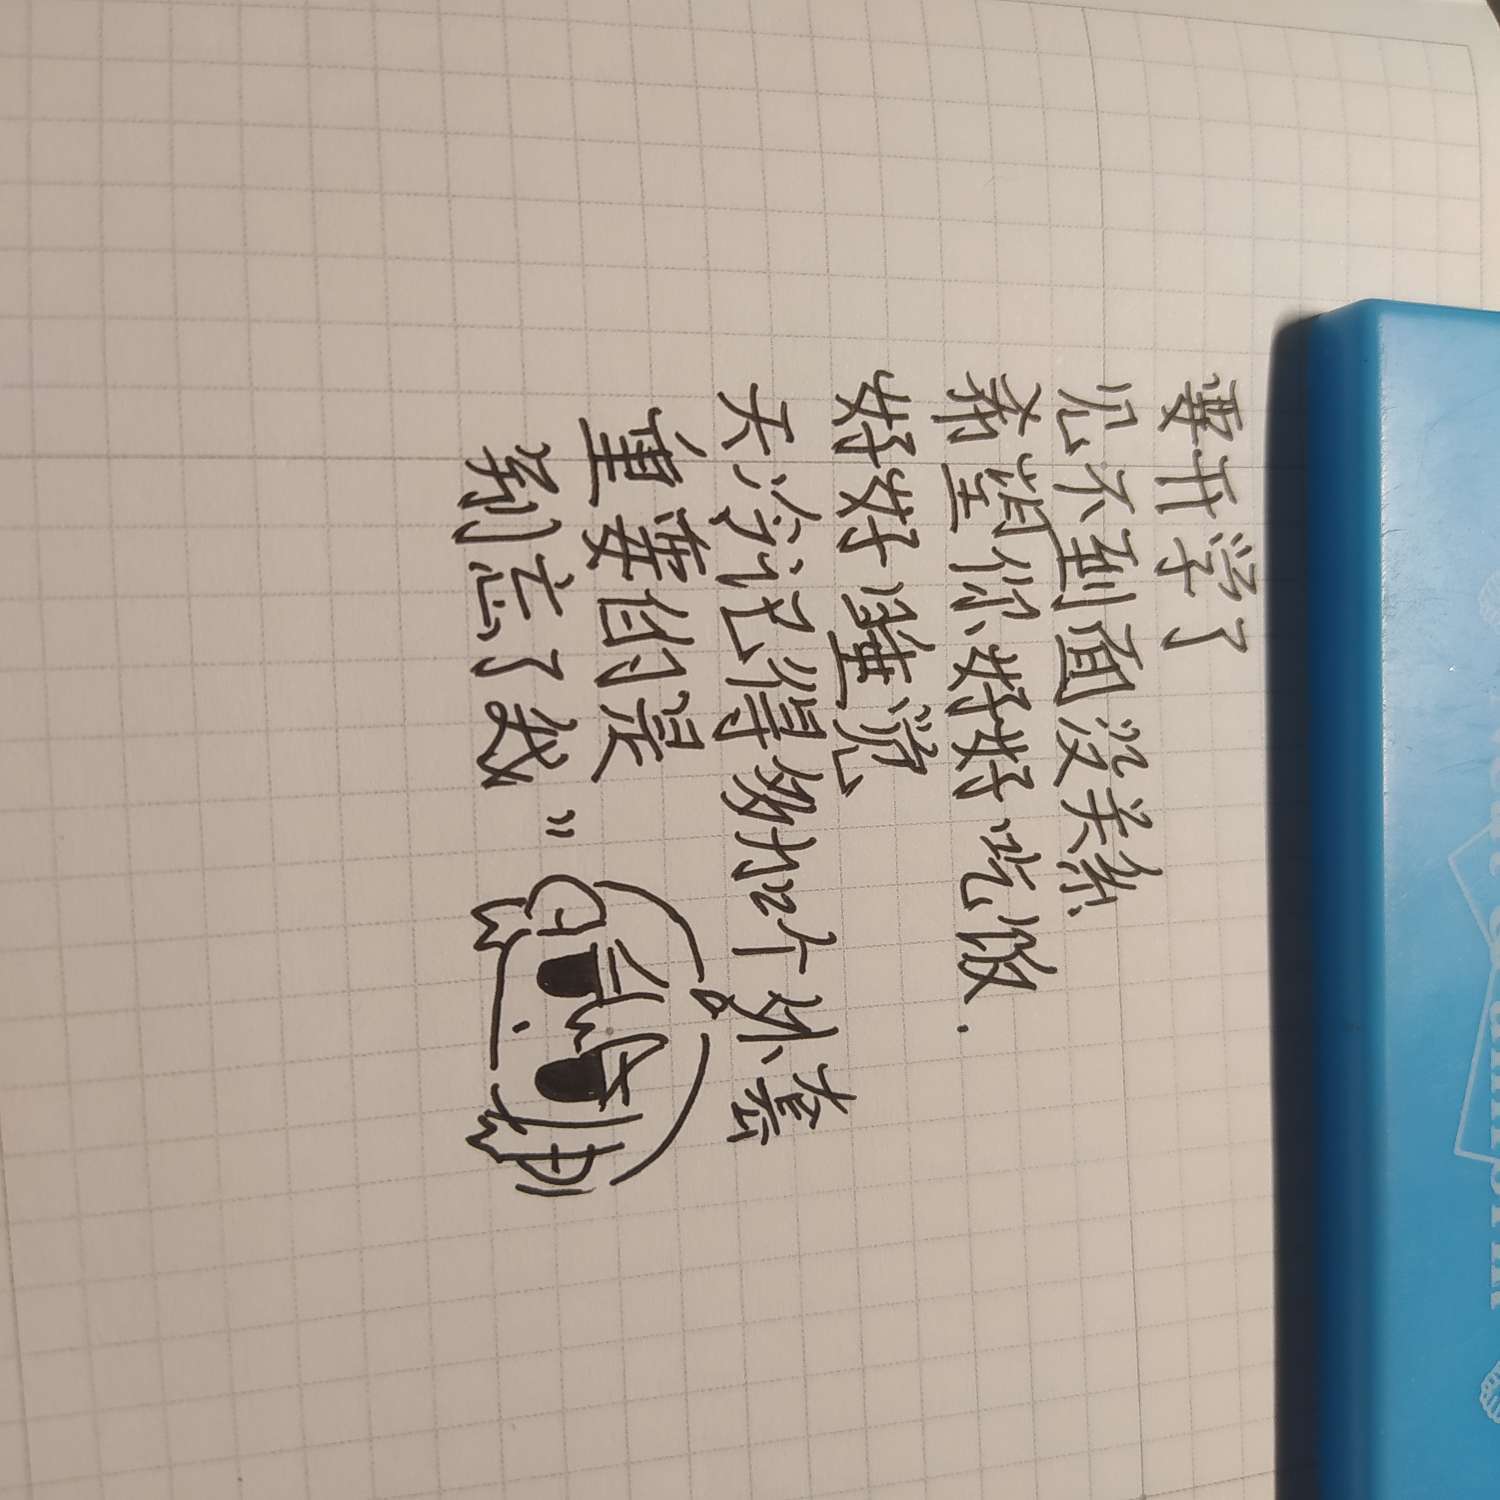 要开学了
见不到面没关系
希望你好好吃饭.
好好睡觉
天冷记得多加个外套
重要的是
别忘了我”